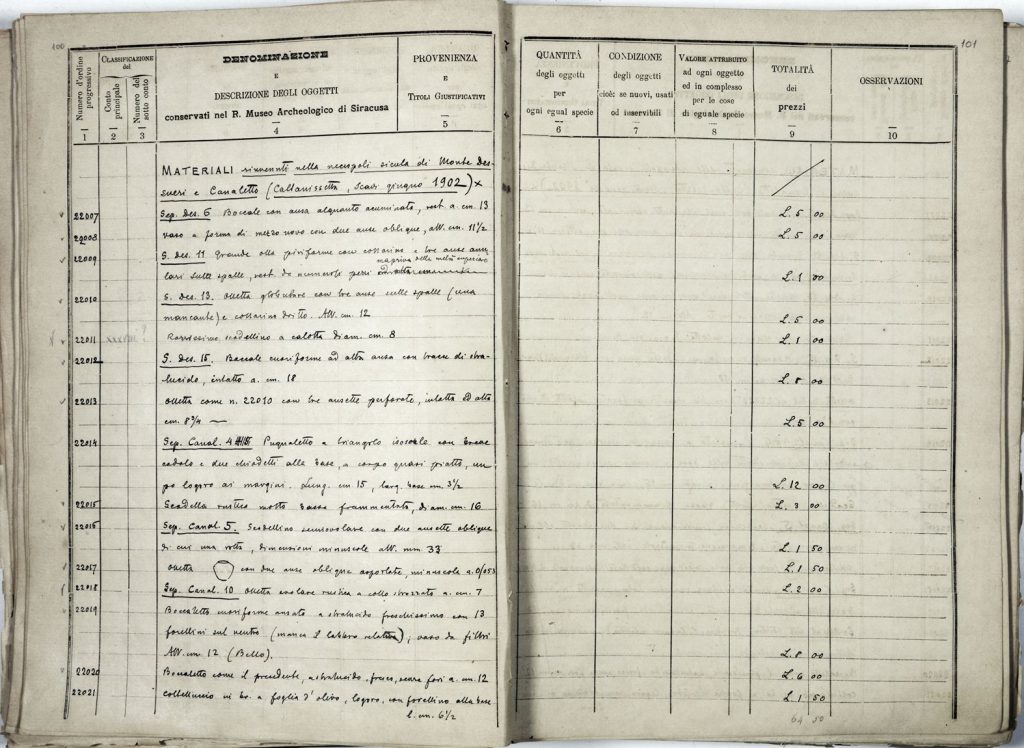 100
101
Numero d'ordine progressivo
CLASSIFICAZIONE del
Conto principale
Numero del sotto conto
DENOMINAZIONE
E
DESCRIZIONE DEGLI OGGETTI
conservati nel R. Museo Archeologico di Siracusa
PROVENIENZA
E
TITOLI GIUSTIFICATIVI
QUANTITÀ
degli oggetti
per
ogni egual specie
CONDIZIONE
degli oggetti
cioè: se nuovi, usati
od inservibili
VALORE ATTRIBUITO
ad ogni oggetto
ed in complesso
per le cose
di eguale specie
TOTALITÀ
dei
prezzi
OSSERVAZIONI
1 2 3 4 5 6 7 8 9 10
MATERIALI rinvenuti nella necropoli sicula di Monte Des-
sueri e Canaletto (Caltanissetta, Scavi giugno 1902) ×
22007 Sep. Des. 6 Boccale con ansa alquanto acuminata, rest. a. cm. 13 L. 5 00
22008 vaso a forma di mezzo uovo con due anse oblique, alt. cm. 11 1/2 L. 5 00
22009 S. Des. 11 grande olla piriforme con collarino e tre anse anu-
ma priva della metà superiore
lari sulle spalle, rest. da numerosi pezzi L. 1 00
22010 S. Des. 13. olletta globulare con tre anse sulle spalle (una
mancante) e collarino dritto. Alt. cm. 12 L. 5 00
22011 XXXVIII ? Rozzissimo scodellino a calotta diam. cm. 8 L. 1 00
22012 S. Des. 15. Boccale cuoriforme ad alta ansa con tracce di stra-
lucido, intatto a. cm. 18 L. 8 00
22013 olletta come n. 22010 con tre ansette perforate, intatta ed alta
cm. 8 3/4 — L. 5 00
22014 Sep. Canal. 4 Pugnaletto a triangolo isoscele con
codolo e due chiodetti alla base, a corpo quasi piatto, un
po logoro ai margini. Lung. cm 15, larg. base cm. 3 1/2 L. 12 00
22015 Scodella rustica molto bassa frammentata, diam. cm. 16 L. 3 00
22016 Sep. Canal. 5. Scodellino semiovolare con due ansette oblique
di cui una rotta, dimensioni minuscole alt. mm 33 L. 1 50
22017 olletta con due anse oblique asportate, minuscola a. 0/053 L. 1 50
22018 Sep. Canal. 10 olletta ovolare rustica a collo strozzato a. cm. 7 L. 2 00
22019 Boccaletto cuoriforme ansato a stralucido freschissimo con 13
forellini sul ventre (manca il labbro relativo), vaso da filtri
Alt. cm. 12 (Bello). L. 8 00
22020 Boccaletto come il precedente, a stralucido fresco, senza fori a. cm. 12 L. 6 00
22021 coltelluccio in br. a foglia d'olivo, logoro, con forellino alla base L. 1 50
l. cm. 6 1/2
64 50